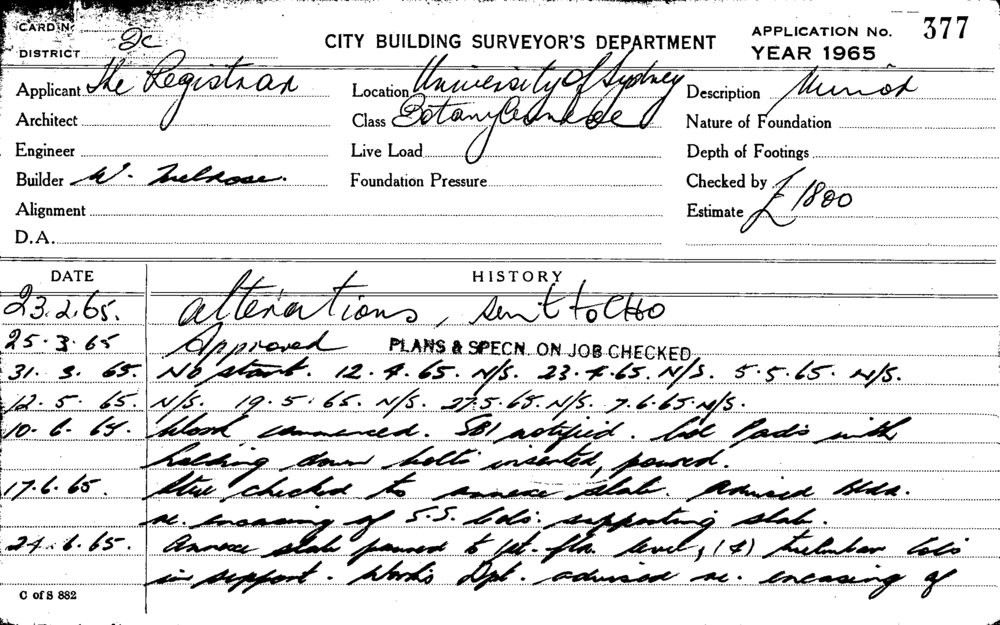 CARD No
DISTRICT 2c
CITY BUILDING SURVEYOR'S DEPARTMENT
APPLICATION No. 377
YEAR 1965
Applicant The Registrar
Location University of Sydney
Description Minor
Architect
Class Botany Annexe
Nature of Foundation
Engineer
Live Load
Depth of Footings
Builder W. Melrose.
Foundation Pressure
Checked by
Alignment
Estimate £1800
D.A.
DATE HISTORY
23.2.65. alterations, sent to CHO
25.3.65 Approved PLANS & SPECN. ON JOB CHECKED
31. 3. 65. No start. 12.4.65. N/S. 23.4.65. N/S. 5.5.65. N/S.
12. 5. 65. N/S. 19.5.65. N/S. 27.5.65. N/S. 7.6.65. N/S.
10. 6. 65. Work commenced. SBI notified. Col Pads with
holding down bolts inserted, poured.
17.6.65. Steel checked to annexe slab. Advised Bldr.
re. encasing of S.S. Cols. supporting slab.
24.6.65. Annexe slab poured to 1st. flr. level, (4) tubular Cols
in support. Works Dpt. advised re. encasing of
C of S 882